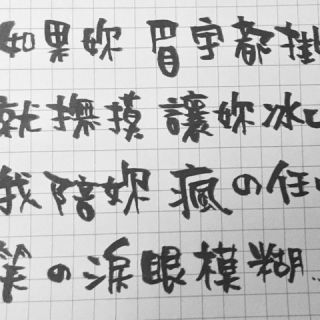 如果妳 眉宇都掛
就撫摸 讓妳冰心
我陪妳 瘋の任
笑の淚眼模糊...